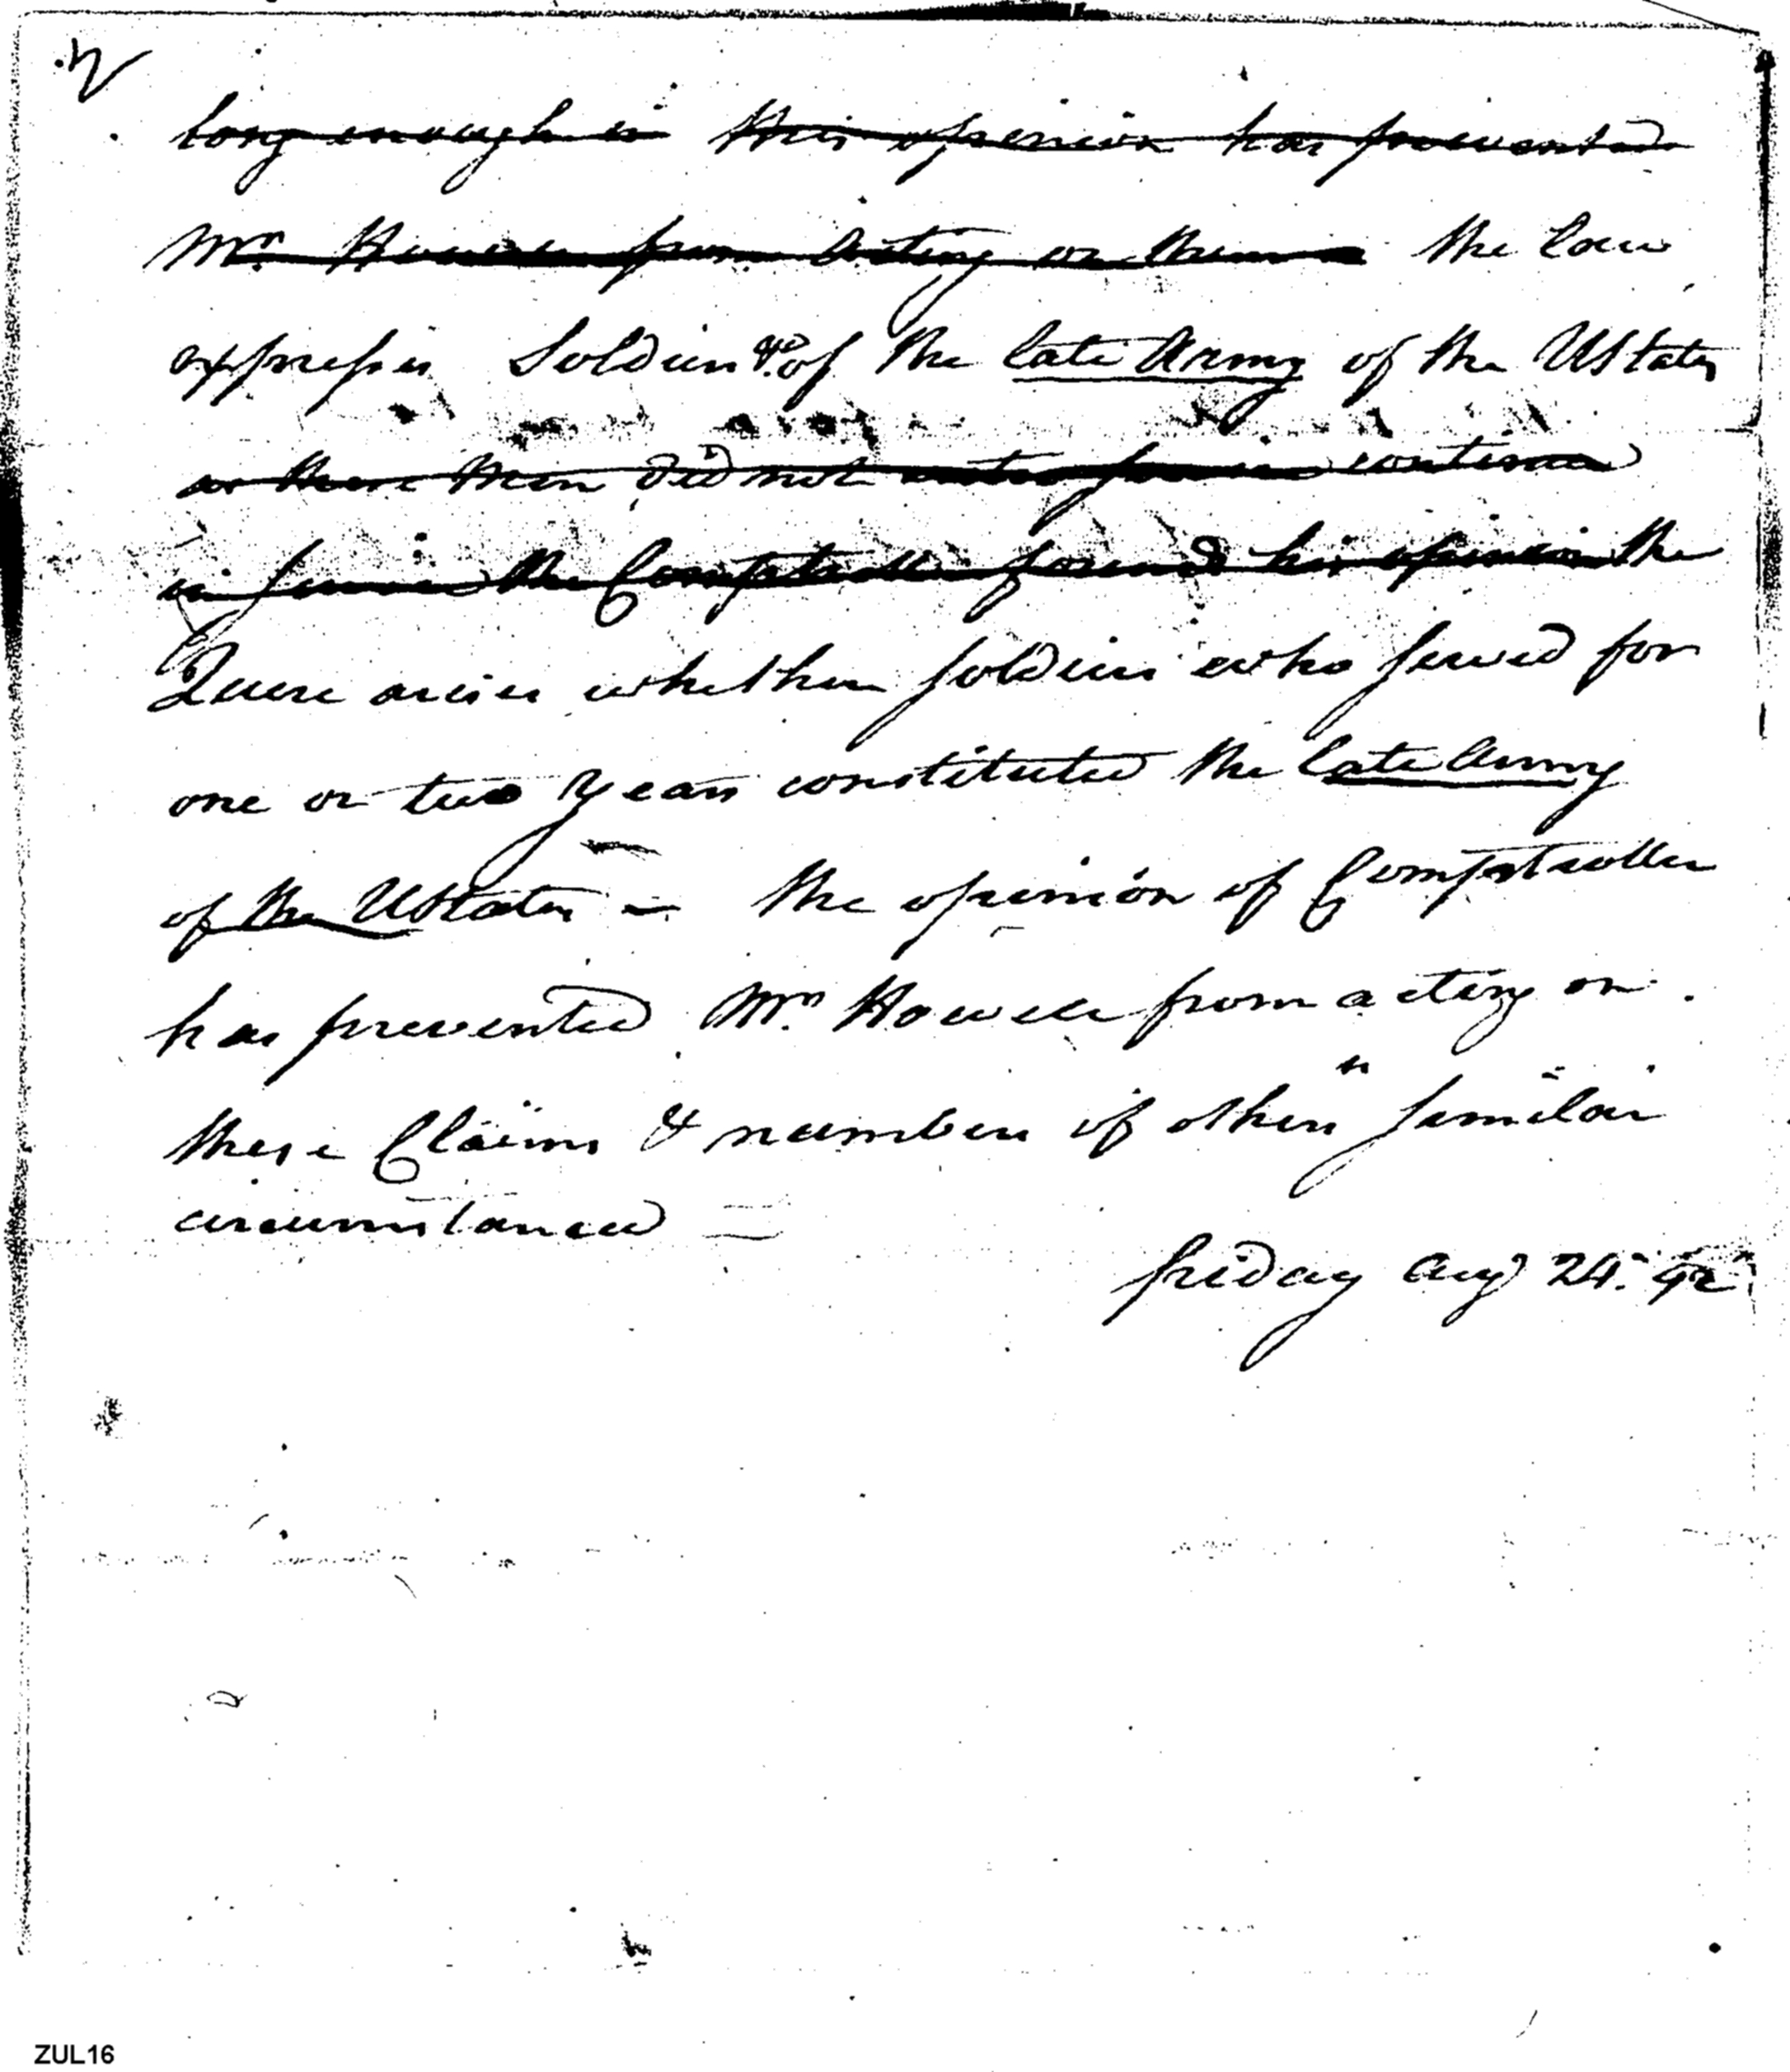 long enough is this opinion has prevented
Mr. Howell from acting on them the law
expresses Soldiers &c. of the late Army of the UStates
as these men did not continue
in service the Comptroller formed his opinion the
Quere arises whether soldiers who served for
one or two years constituted the late Army
of the UStates = the opinion of Comptroller
has prevented Mr. Howell from acting on
these Claims & numbers of others similar
circumstanced =
friday Augt 24. 92
ZUL16